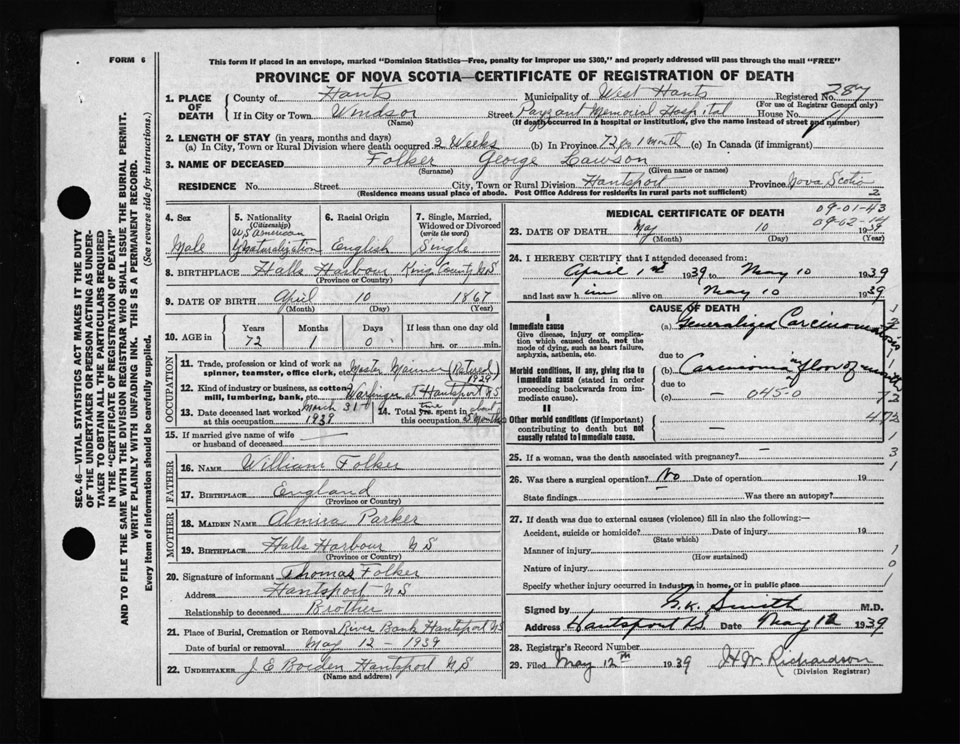 FORM 6
This form if placed in an envelope, marked "Dominion Statistics—Free, penalty for improper use $300," and properly addressed will pass through the mail "FREE"
PROVINCE OF NOVA SCOTIA—CERTIFICATE OF REGISTRATION OF DEATH
SEC. 46—VITAL STATISTICS ACT MAKES IT THE DUTY
OF THE UNDERTAKER OR PERSON ACTING AS UNDER-
TAKER TO OBTAIN ALL THE PARTICULARS REQUIRED
IN THE "CERTIFICATE OF REGISTRATION OF DEATH"
AND TO FILE THE SAME WITH THE DIVISION REGISTRAR WHO SHALL ISSUE THE BURIAL PERMIT.
WRITE PLAINLY WITH UNFADING INK. THIS IS A PERMANENT RECORD.
Every item of information should be carefully supplied. (See reverse side for instructions.)
1. PLACE OF DEATH County of Hants Municipality of West Hants Registered No. 787
(For use of Registrar General only)
If in City or Town Windsor Street Payzant Memorial Hospital House No.
(Name) (If death occurred in a hospital or institution, give the name instead of street and number)
2. LENGTH OF STAY (in years, months and days)
(a) In City, Town or Rural Division where death occurred 2 Weeks (b) In Province 72 yrs 1 month (c) In Canada (if immigrant)
3. NAME OF DECEASED Folker George Lawson
(Surname) (Given name or names)
RESIDENCE No. Street City, Town or Rural Division Hantsport Province Nova Scotia
(Residence means usual place of abode. Post Office Address for residents in rural parts not sufficient) 2
4. Sex
Male
5. Nationality
(Citizenship)
US American
Naturalization
6. Racial Origin
English
7. Single, Married,
Widowed or Divorced
(write the word)
Single
8. BIRTHPLACE Halls Harbour Kings County NS
(Province or Country)
9. DATE OF BIRTH April 10 1867
(Month) (Day) (Year)
10. AGE in
Years Months Days If less than one day old
72 1 0 hrs. or min.
OCCUPATION
11. Trade, profession or kind of work as Master Mariner (Retired)
spinner, teamster, office clerk, etc. 1929
12. Kind of industry or business, as cotton
mill, lumbering, bank, etc. Wharfinger at Hantsport NS
13. Date deceased last worked March 31st
at this occupation 1939
14. Total time spent in about
this occupation 5 Months
15. If married give name of wife
or husband of deceased —
FATHER
16. NAME William Folker
17. BIRTHPLACE England
(Province or Country)
MOTHER
18. MAIDEN NAME Almira Parker
19. BIRTHPLACE Halls Harbour NS
(Province or Country)
20. Signature of informant Thomas Folker
Address Hantsport NS
Relationship to deceased Brother
21. Place of Burial, Cremation or Removal River Bank Hantsport NS
Date of burial or removal May 12 - 1939
22. UNDERTAKER J E Borden Hantsport NS
(Name and address)
MEDICAL CERTIFICATE OF DEATH 09-01-43
09-02-14
23. DATE OF DEATH May 10 1939
(Month) (Day) (Year)
24. I HEREBY CERTIFY that I attended deceased from:
April 1st 1939 to May 10 1939
and last saw him alive on May 10 1939
CAUSE OF DEATH
I
Immediate cause (a) Generalized Carcinomatosis
Give disease, injury or complica-
tion which caused death, not the
mode of dying, such as heart failure,
asphyxia, asthenia, etc.
due to
Morbid conditions, if any, giving rise to
immediate cause (stated in order
proceeding backwards from im-
mediate cause).
(b) Carcinoma in floor of mouth
due to
(c) — 045-0
II
Other morbid conditions (if important)
contributing to death but not
causally related to Immediate cause.
—
25. If a woman, was the death associated with pregnancy? —
26. Was there a surgical operation? No Date of operation 19
State findings Was there an autopsy?
27. If death was due to external causes (violence) fill in also the following:—
Accident, suicide or homicide? Date of injury 19
(State which)
Manner of injury
(How sustained)
Nature of injury
Specify whether injury occurred in industry, in home, or in public place
Signed by G.K. Smith M.D.
Address Hantsport NS Date May 12 1939
28. Registrar's Record Number
29. Filed May 12th 1939 H W Richardson
(Division Registrar)